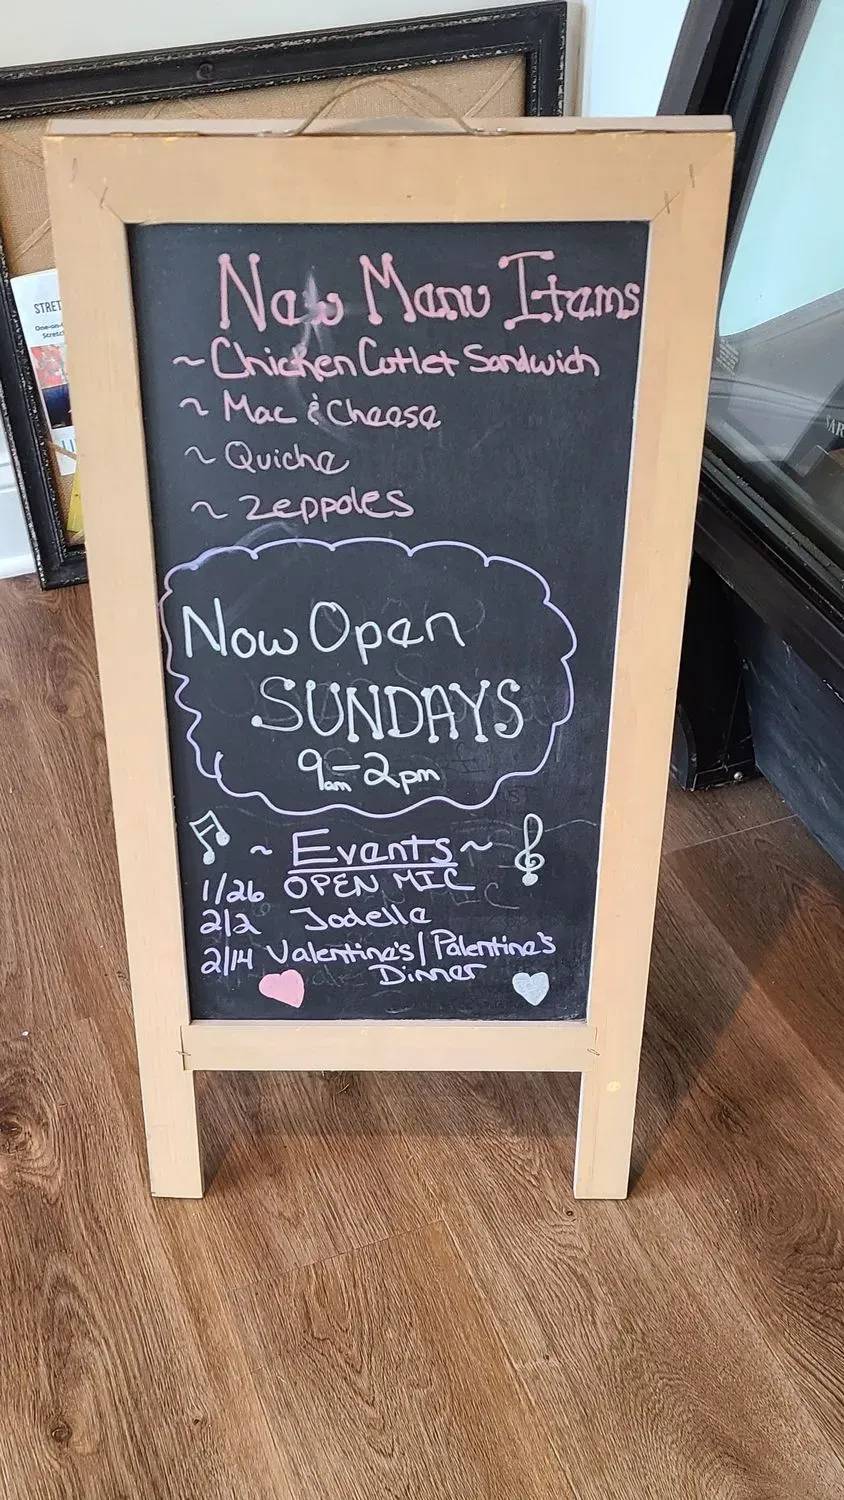 New Menu Items
~ Chicken Cutlet Sandwich
~ Mac & Cheese
~ Quiche
~ Zeppoles
Now Open
SUNDAYS
9am-2pm
~ Events ~
1/26 OPEN MIC
2/2 Jodelle
2/14 Valentine's/Palentine's
Dinner
STRET
One-on-